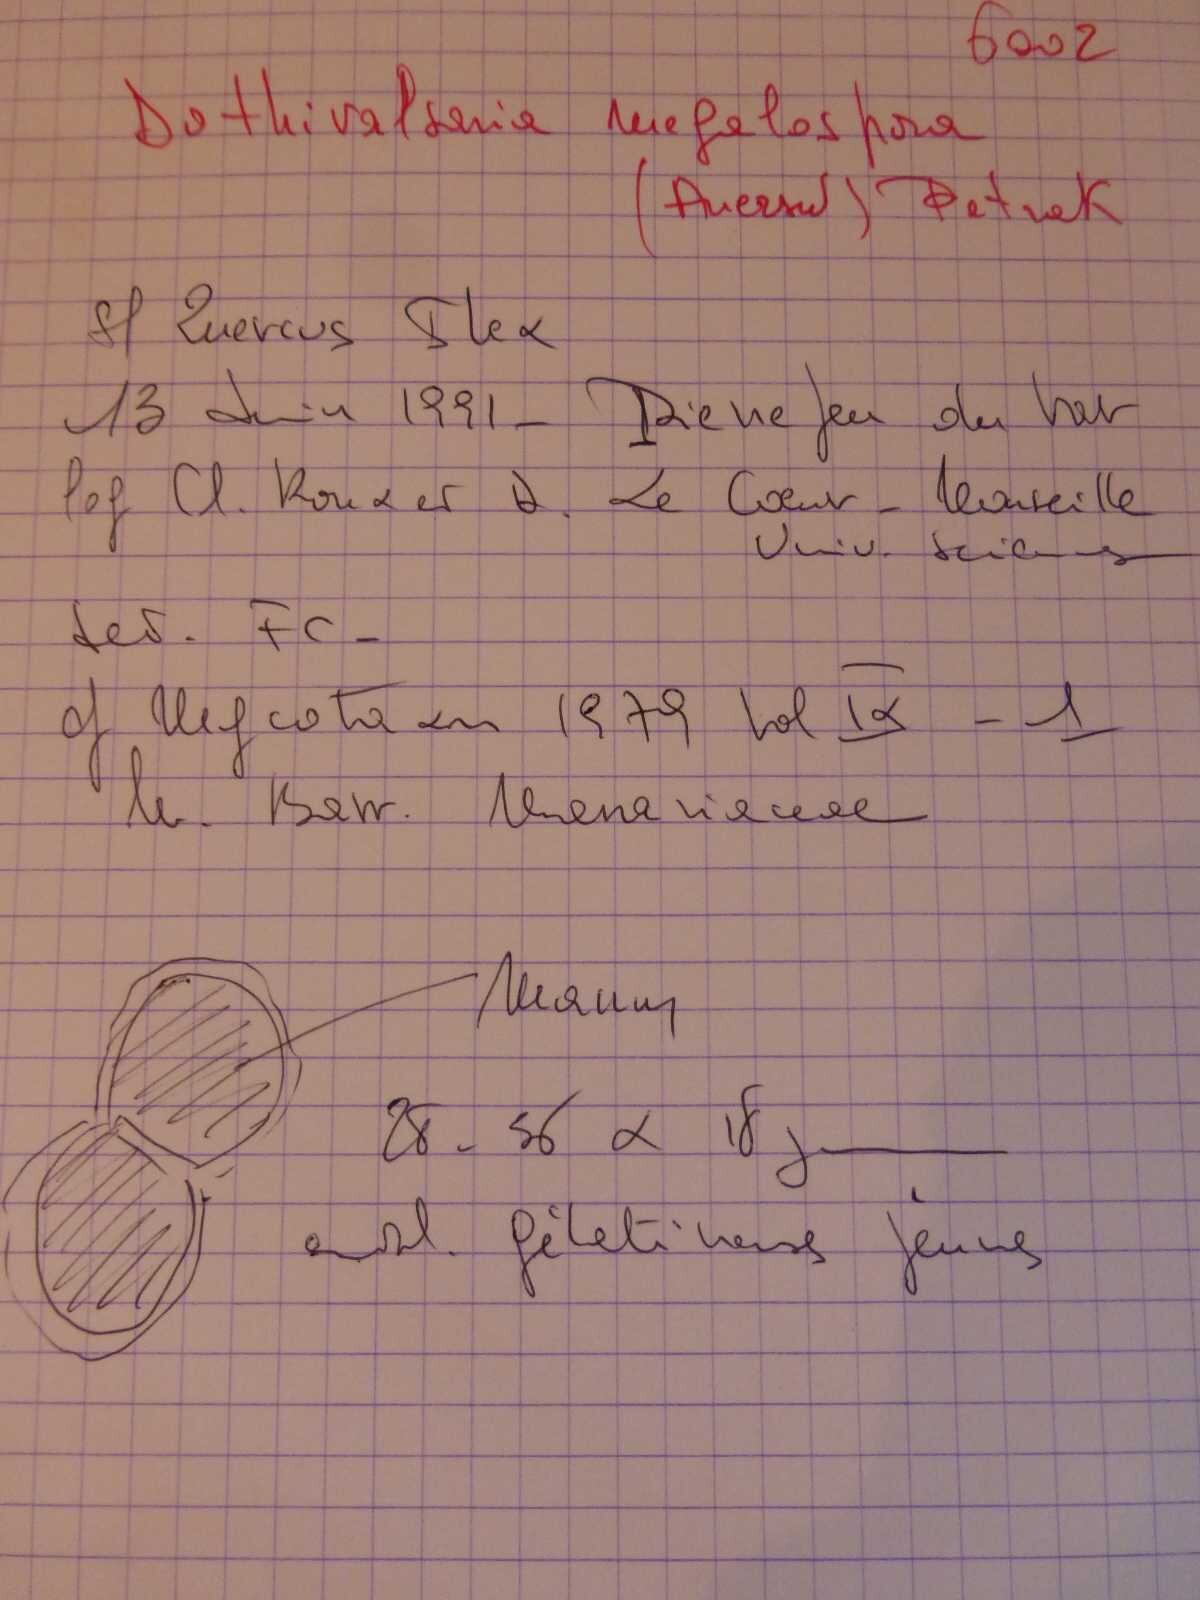 6002
Dothivalsaria megalospora
(Auersw) Petrak
s/ Quercus Ilex
13 Juin 1991 - Pierrefeu du Var
leg Cl. Rouxet D. Le Coeur - Marseille
Univ. Sciences
det. FC -
cf Mycotaxon 1979 Vol IX - 1
M. Barr. Massariaceae
brun
28 - 36 x 18 µ
gélatineuses jeunes